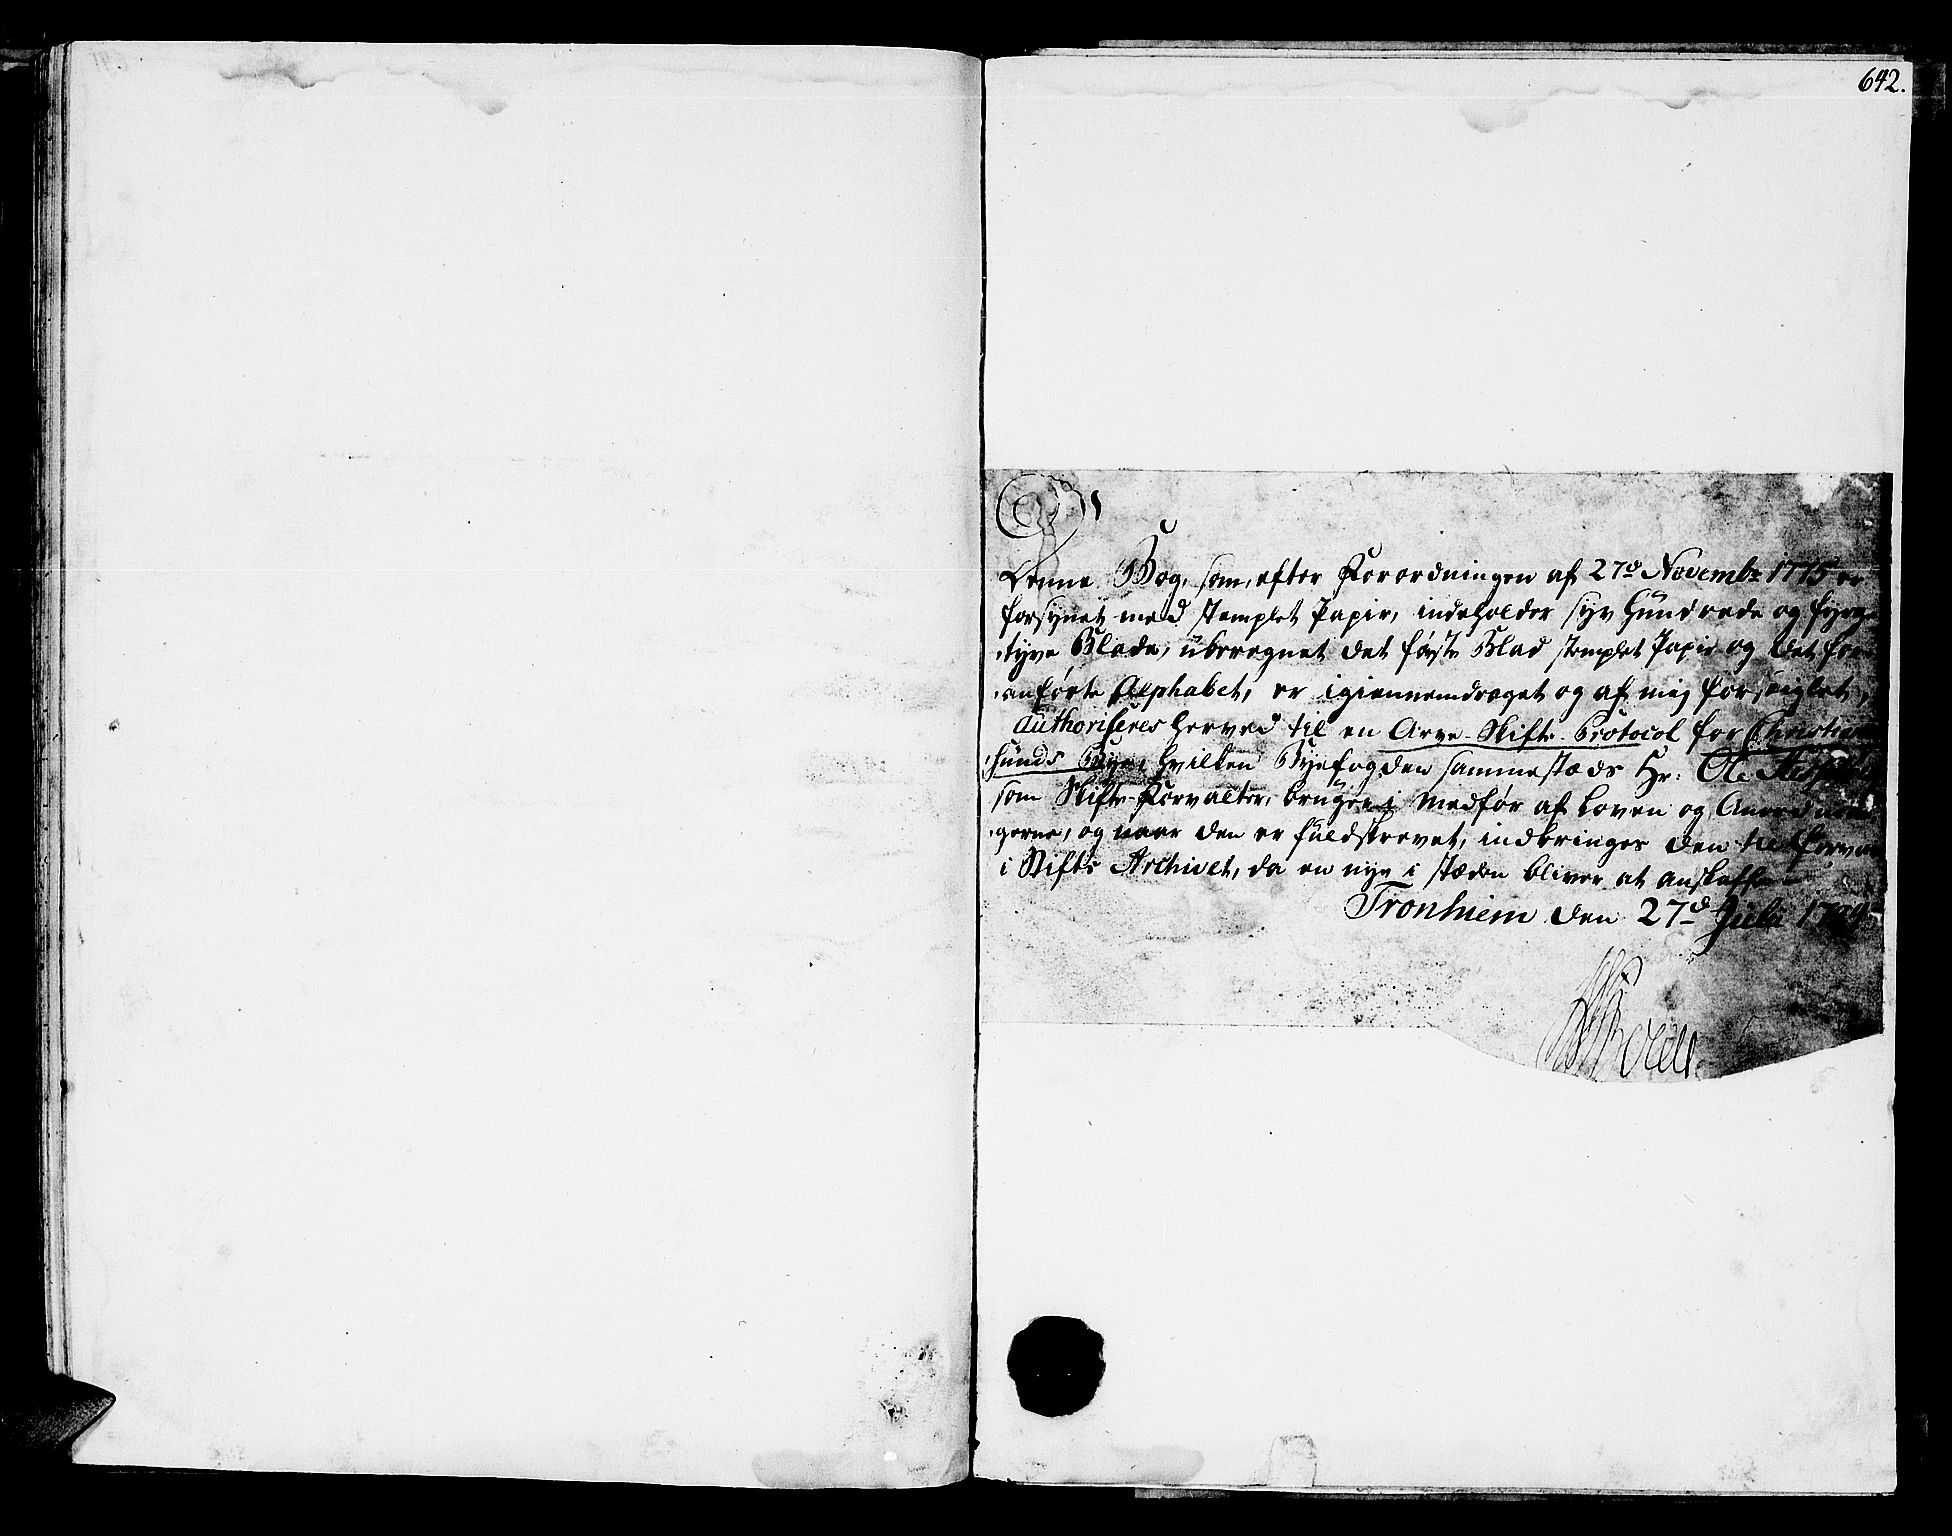 642.
Denne Bog, som, efter Forordningen af 27d Novembr 1775 er
forsynet med stemplet Papir, indeholder syv Hundrede og fyrge
tyve Blade, uberegnet det første Blad stemplet Papir og det for
anførte Alphabet, er igiennemdraget og af mig forseiglet,
authoriseres herved til en Arve-Skifte-Protocol for Christian
sunds Bye, hvilken Byefogden sammestæds Hr: Ole
som Skifte-Forvalter, bruger i Medfør af Loven og Anordnin
gerne, og naar den er fuldskrevet, indbringes den til Forvar
i Stifts Archivet, da en nye i stæden bliver at anskaffe
Tronhiem den 27d Julii